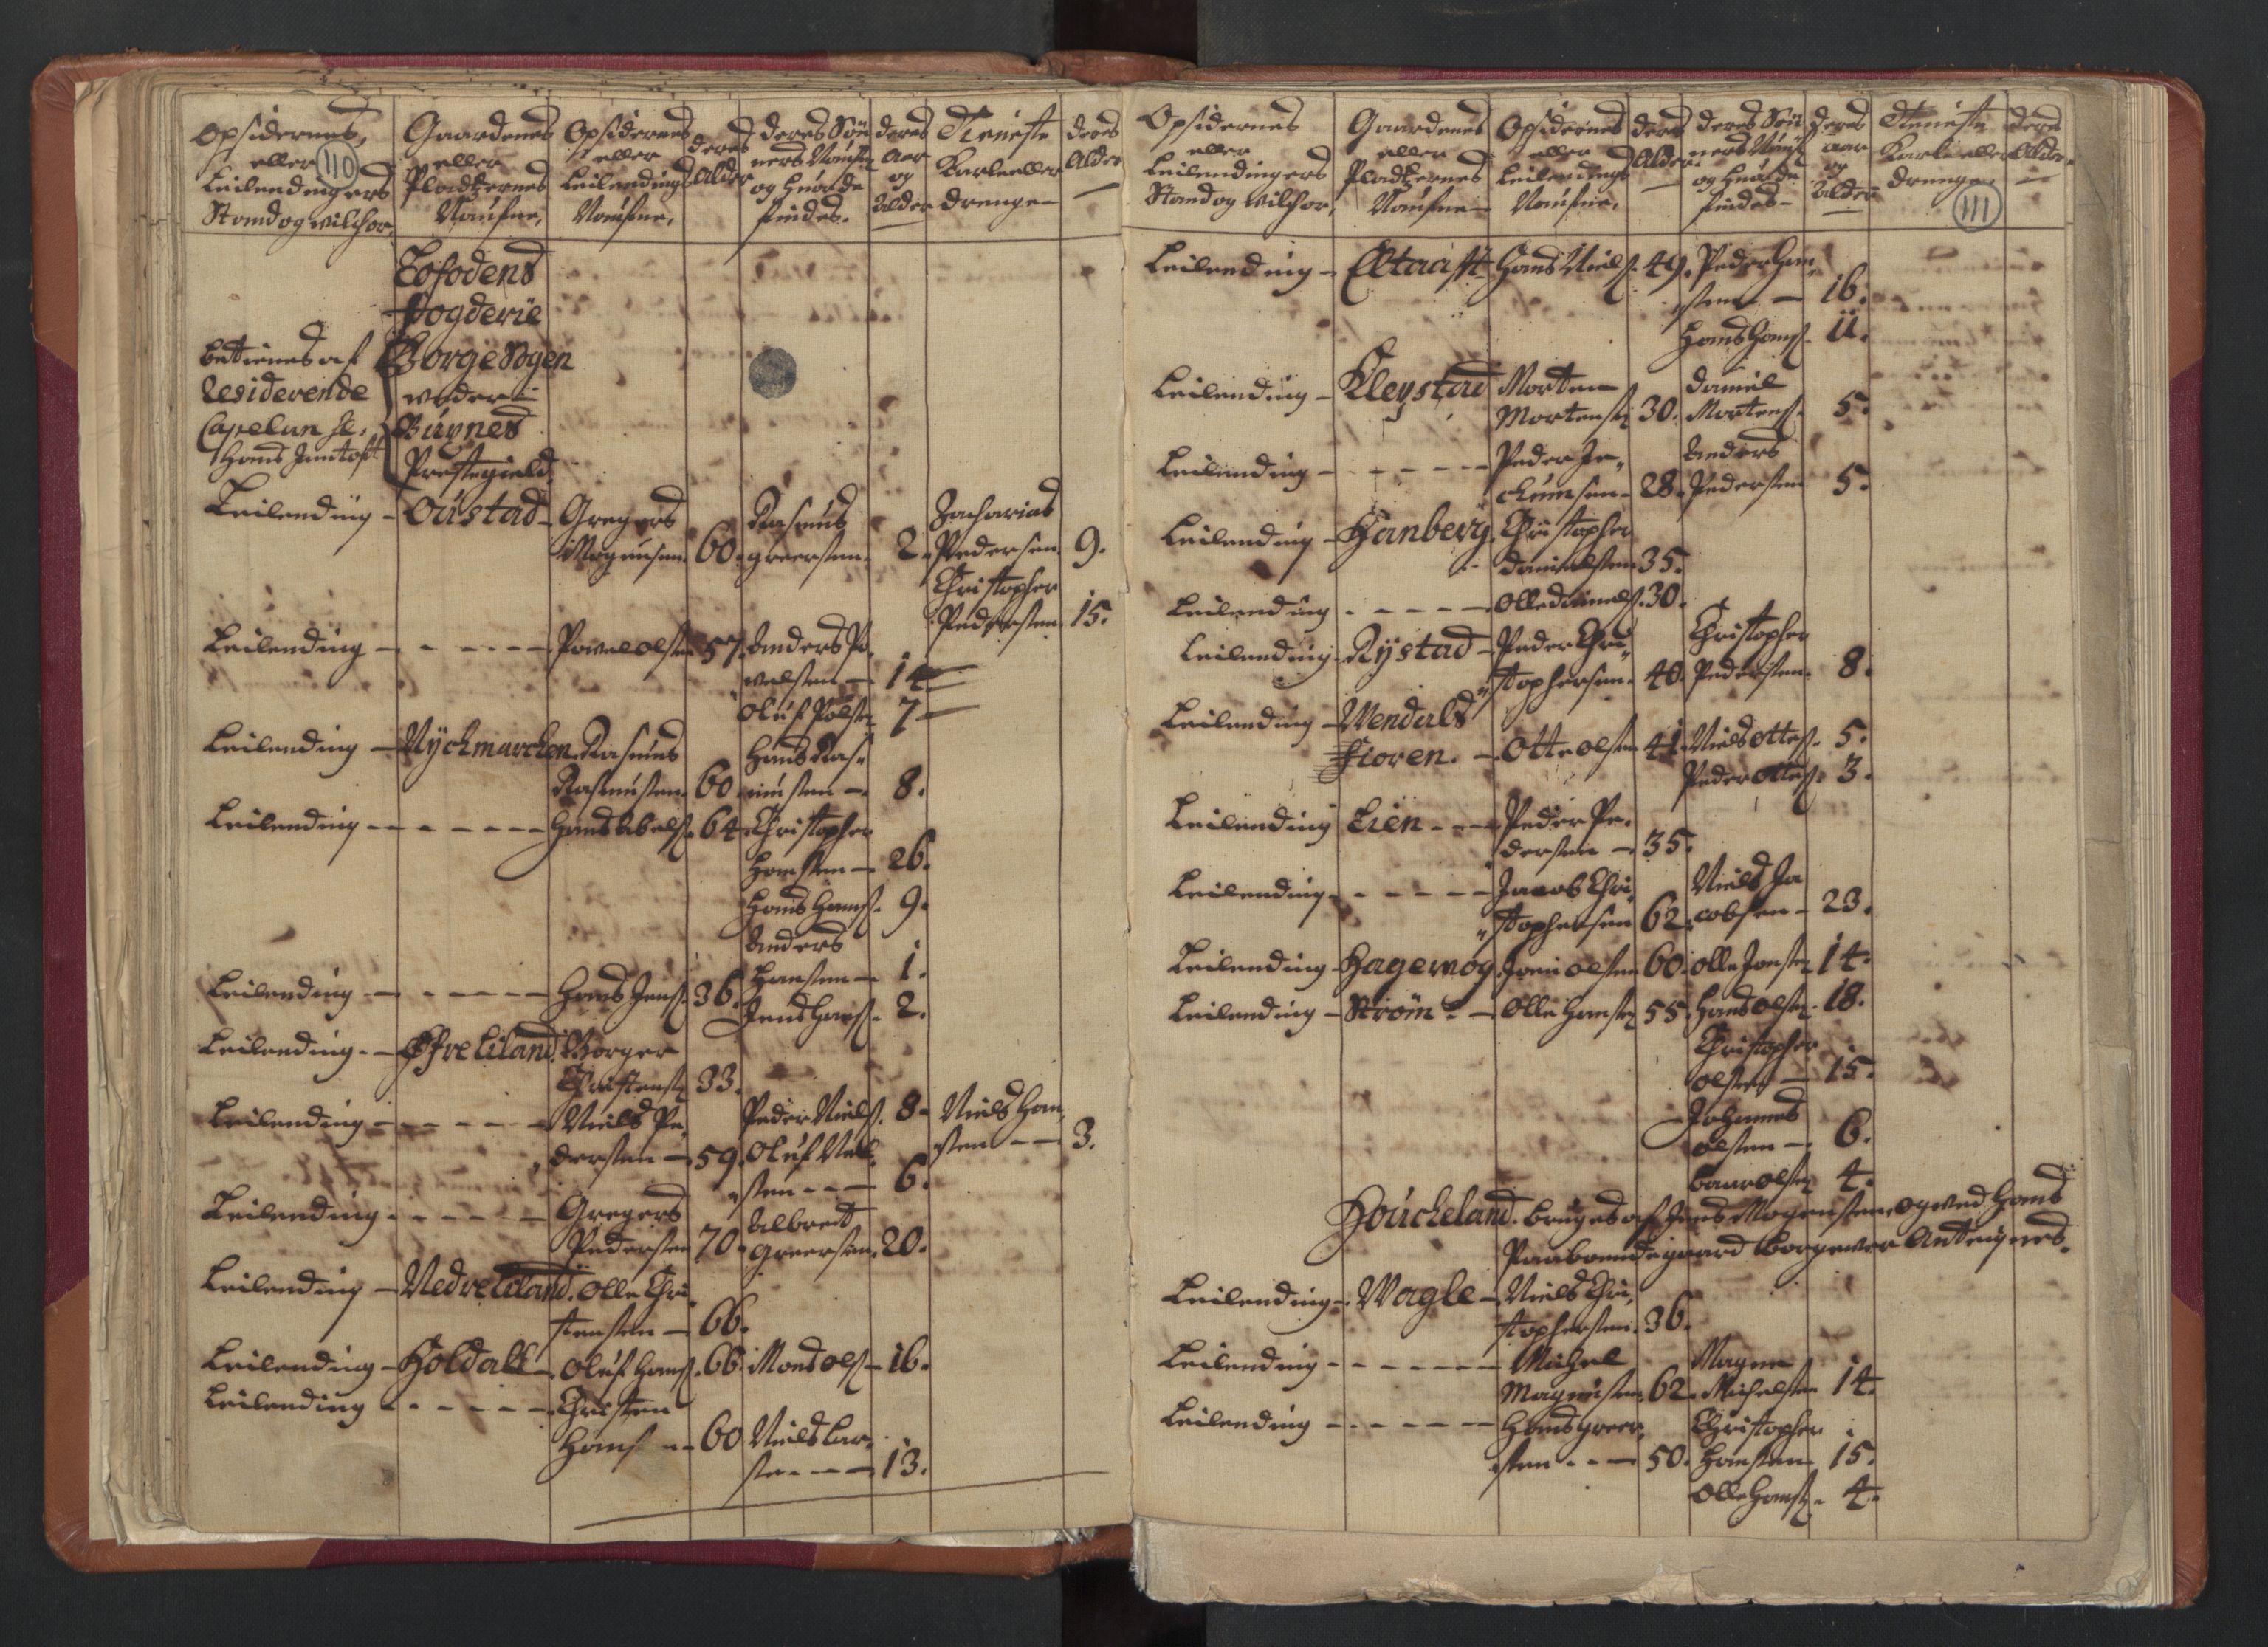 110
Opsidernes eller Leilendingers Stand og vilchor,
Gaardenes eller Pladtzernes Naufne,
Opsidernes eller Leilendings Naufne,
deres Alder
deres Sønners Naufne og huor de findes.
deres aar og alder
Tieniste Karle eller drenge
deres Alder
Lofodens
fogderie
betienes af Residerende Capelan Hr. Hans Juntoft
Borge Sogen
under
Buxnes
Prestegield.
Leilending - Oustad - Gregers Mogensen 60. Rasmus greersen. 2. Zacharias Pedersen 9.
Christopher Pedersen 15.
Leilending - - - - Powel olsen 57. Anders Powelsen 14
Oluf Polsen 7
Leilending - Nÿchmarchen Rasmus Rasmusen. 60. Hans Rasmusen 8.
Leilending - - - - Hans Abels. 64. Christopher Hansen 26.
Hans Hans. 9.
Anders Hansen 1.
Leilending - - - - Hans Jens. 36. Jens Hans. 2.
Leilending - Øfre Liland. Borger Christens. 33.
Leilending - - - - Niels Pedersen 59. Peder Niels. 8. Niels Hansen 3.
Oluf Nielsen 6.
Leilending - - - - Gregers Pedersen 70. Albreit Greersen. 20.
Leilending - Nedre Liland. Olle Christensen 66.
Leilending - Holdall - Oluf Hans. 66. Mons ols. 16.
Leilending - - - - Christen Hans. 60 Niels Larsen 13.
111
Opsidernes eller Leilendingers Stand og vilchor,
Gaardenes eller Pladtzernes Naufne
Opsidernes eller Leilendings Naufne,
deres Alder
deres Sønners Naufn og huor de findes
deres aar og alder
Tieniste Karle eller drenge
deres Alder
Leilending - Eltaaft Hans Niels. 49. Peder Hansen 16.
Hans Hans. 11.
Leilending - Kleystad Morten Mortens. 30. Daniel Mortens. 5.
Leilending - - - - Peder Jechumsen 28. Anders Pedersen 5.
Leilending - Hanberg. Christopher Danielsen 35.
Leilending - - - - Olle Daniels. 30.
Leilending - Rÿstad - Peder Christophersen. 40. Christopher Pedersen. 8.
Leilending - Wendals
Fioren. - Otte olsen 41. Niels ottes. 5.
Peder ottes. 3.
Leilending Lien - - - Peder Pedersen 35.
Leilending - - - - Jacob Christophersen 62. Niels Jacobsen 23.
Leilending - Hagewog. Joen olsen 60. Olle Jonsen 14.
Leilending - Strøm - Olle Hansen 55. Hans olsen 18.
Christopher olsen 15.
Johannes olsen 6.
olsen 4.
Houcheland. bruges af Jens Mogensen, og ved Hans
paaboende gaard Borgewer Anteignes.
Leilending - Wagle - Niels Christophersen. 36.
Leilending - - - - Michel Magnusen 62. Magne Michelsen 14.
Leilending - - - - Hans greersen 50. Christopher Hansen 15.
Olle Hans. 4.